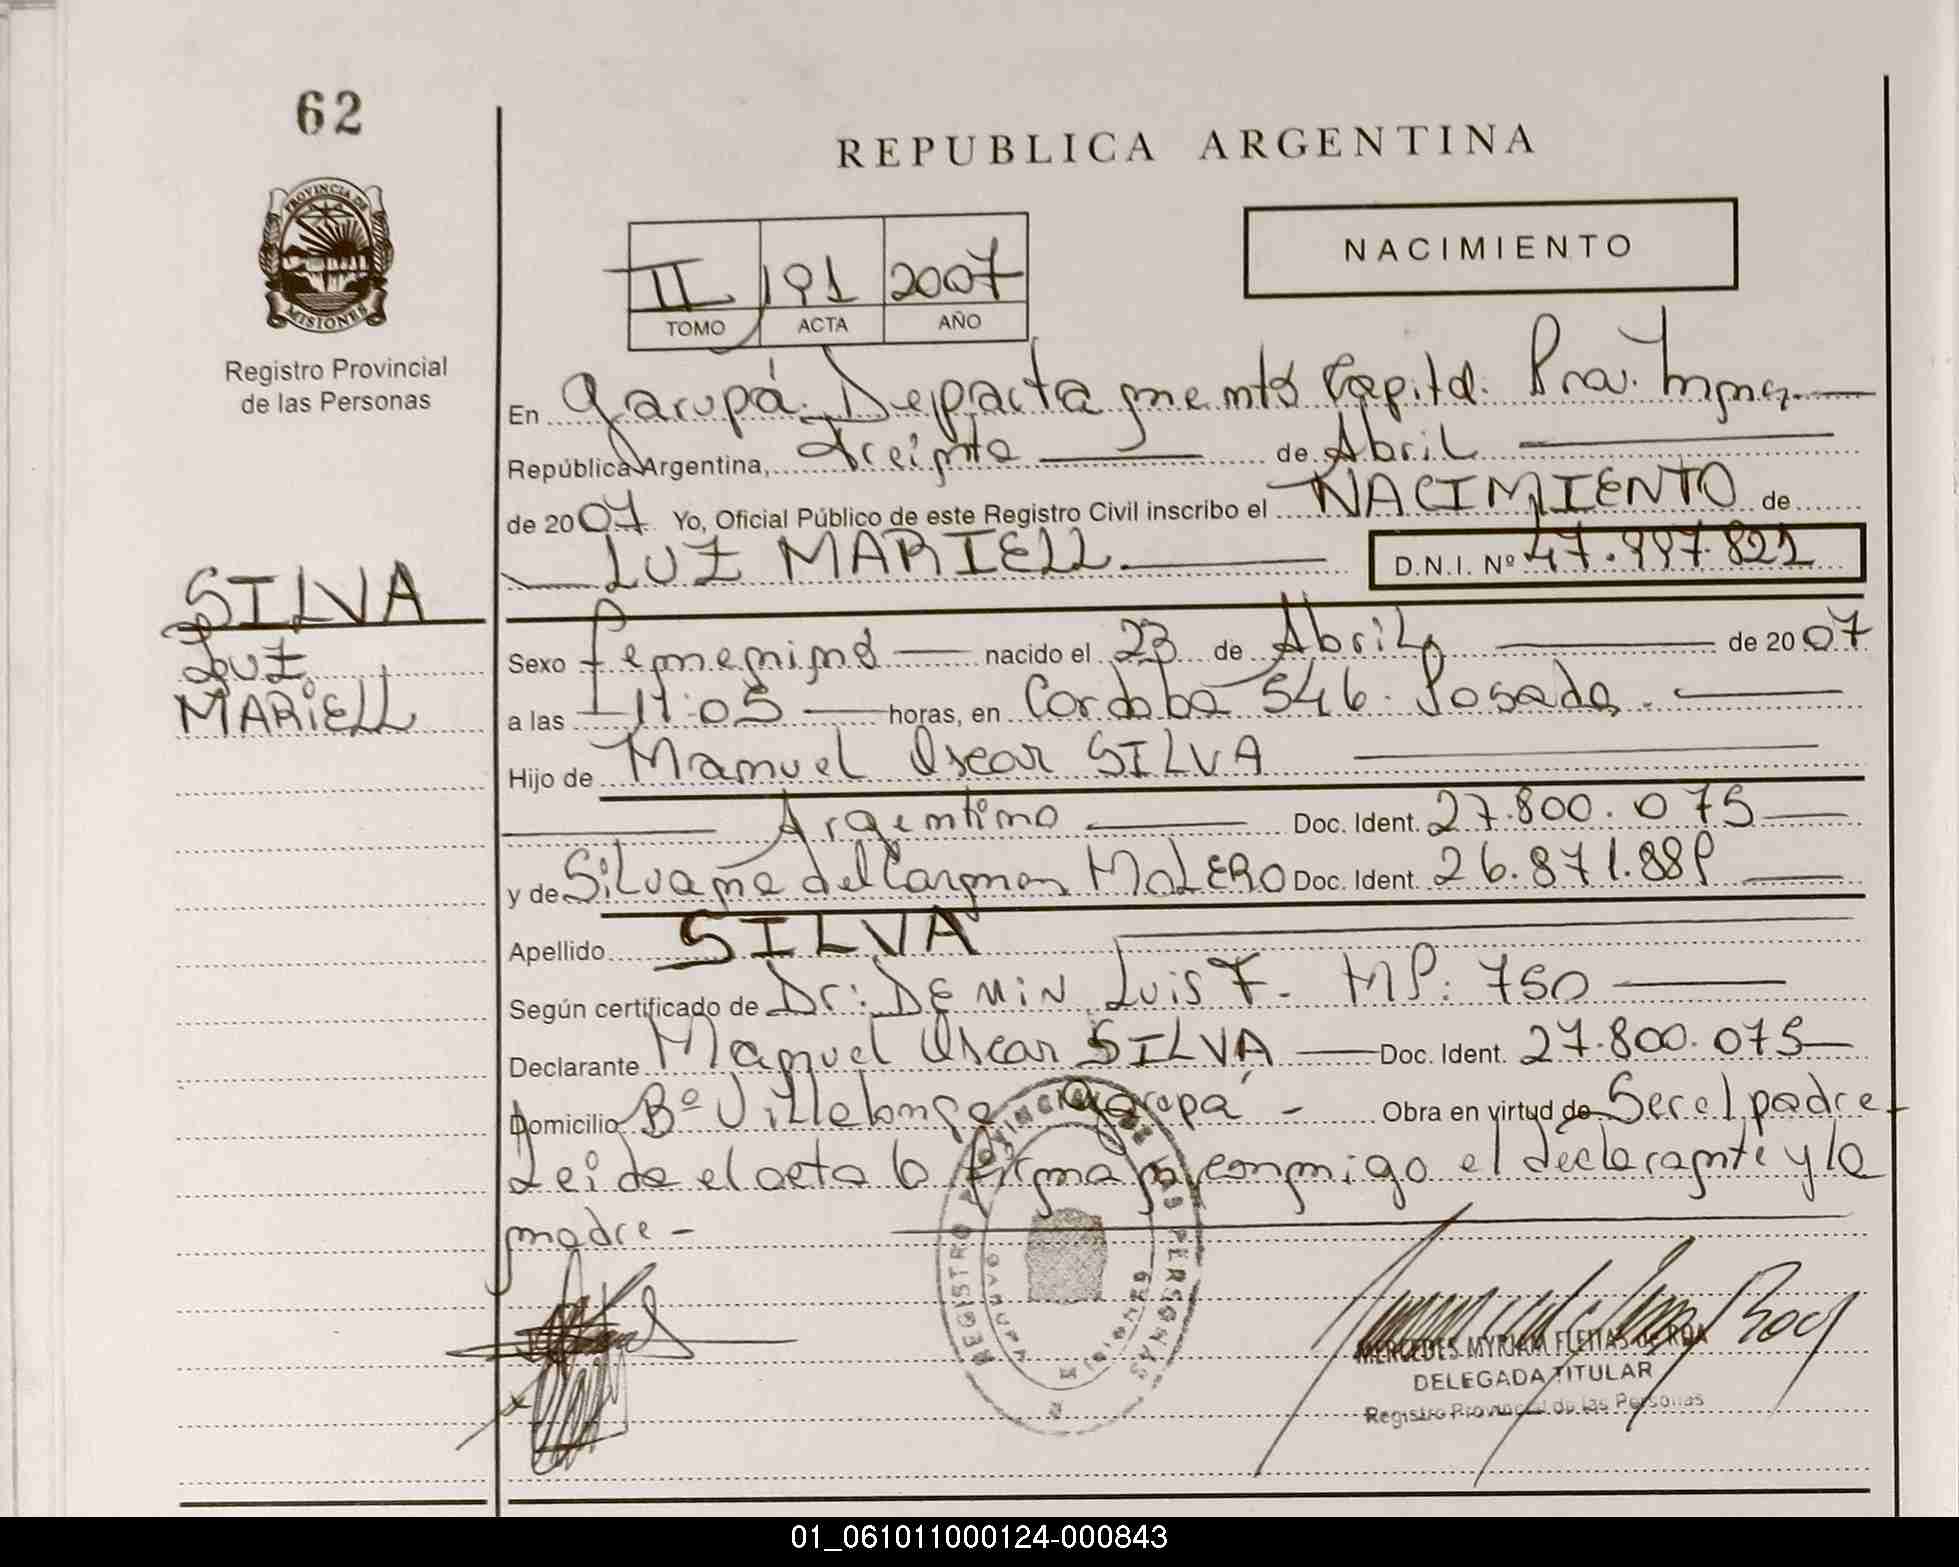 62
REPUBLICA ARGENTINA
PROVINCIA DE
MISIONES
Registro Provincial
de las Personas
NACIMIENTO
II 191 2007
TOMO ACTA AÑO
En Garupá. Departamento Capital. Prov.
República Argentina, Treinta de Abril
de 2007 Yo, Oficial Público de este Registro Civil inscribo el NACIMIENTO de
LUZ MARIELL D.N.I. Nº 47.997.822
SILVA
LUZ
MARIELL
Sexo femenino nacido el 23 de Abril de 2007
a las 11:05 horas, en Cordoba 546. Posadas.
Hijo de Manuel Oscar SILVA
Argentino Doc. Ident. 27.800.075
y de Silvana del Carmen MOLERO Doc. Ident. 26.871.889
Apellido SILVA
Según certificado de Dr: DEMIN Luis F. MP: 750
Declarante Manuel Oscar SILVA Doc. Ident. 27.800.075
Domicilio Bº Villalonga Garupá - Obra en virtud de Ser el padre -
Leida el acta la firman conmigo el declarante y la
madre -
REGISTRO PROVINCIAL DE LAS PERSONAS
GARUPA
MISIONES
MERCEDES MYRIAM FLEITAS de ROA
DELEGADA TITULAR
Registro Provincial de las Personas
01_061011000124-000843